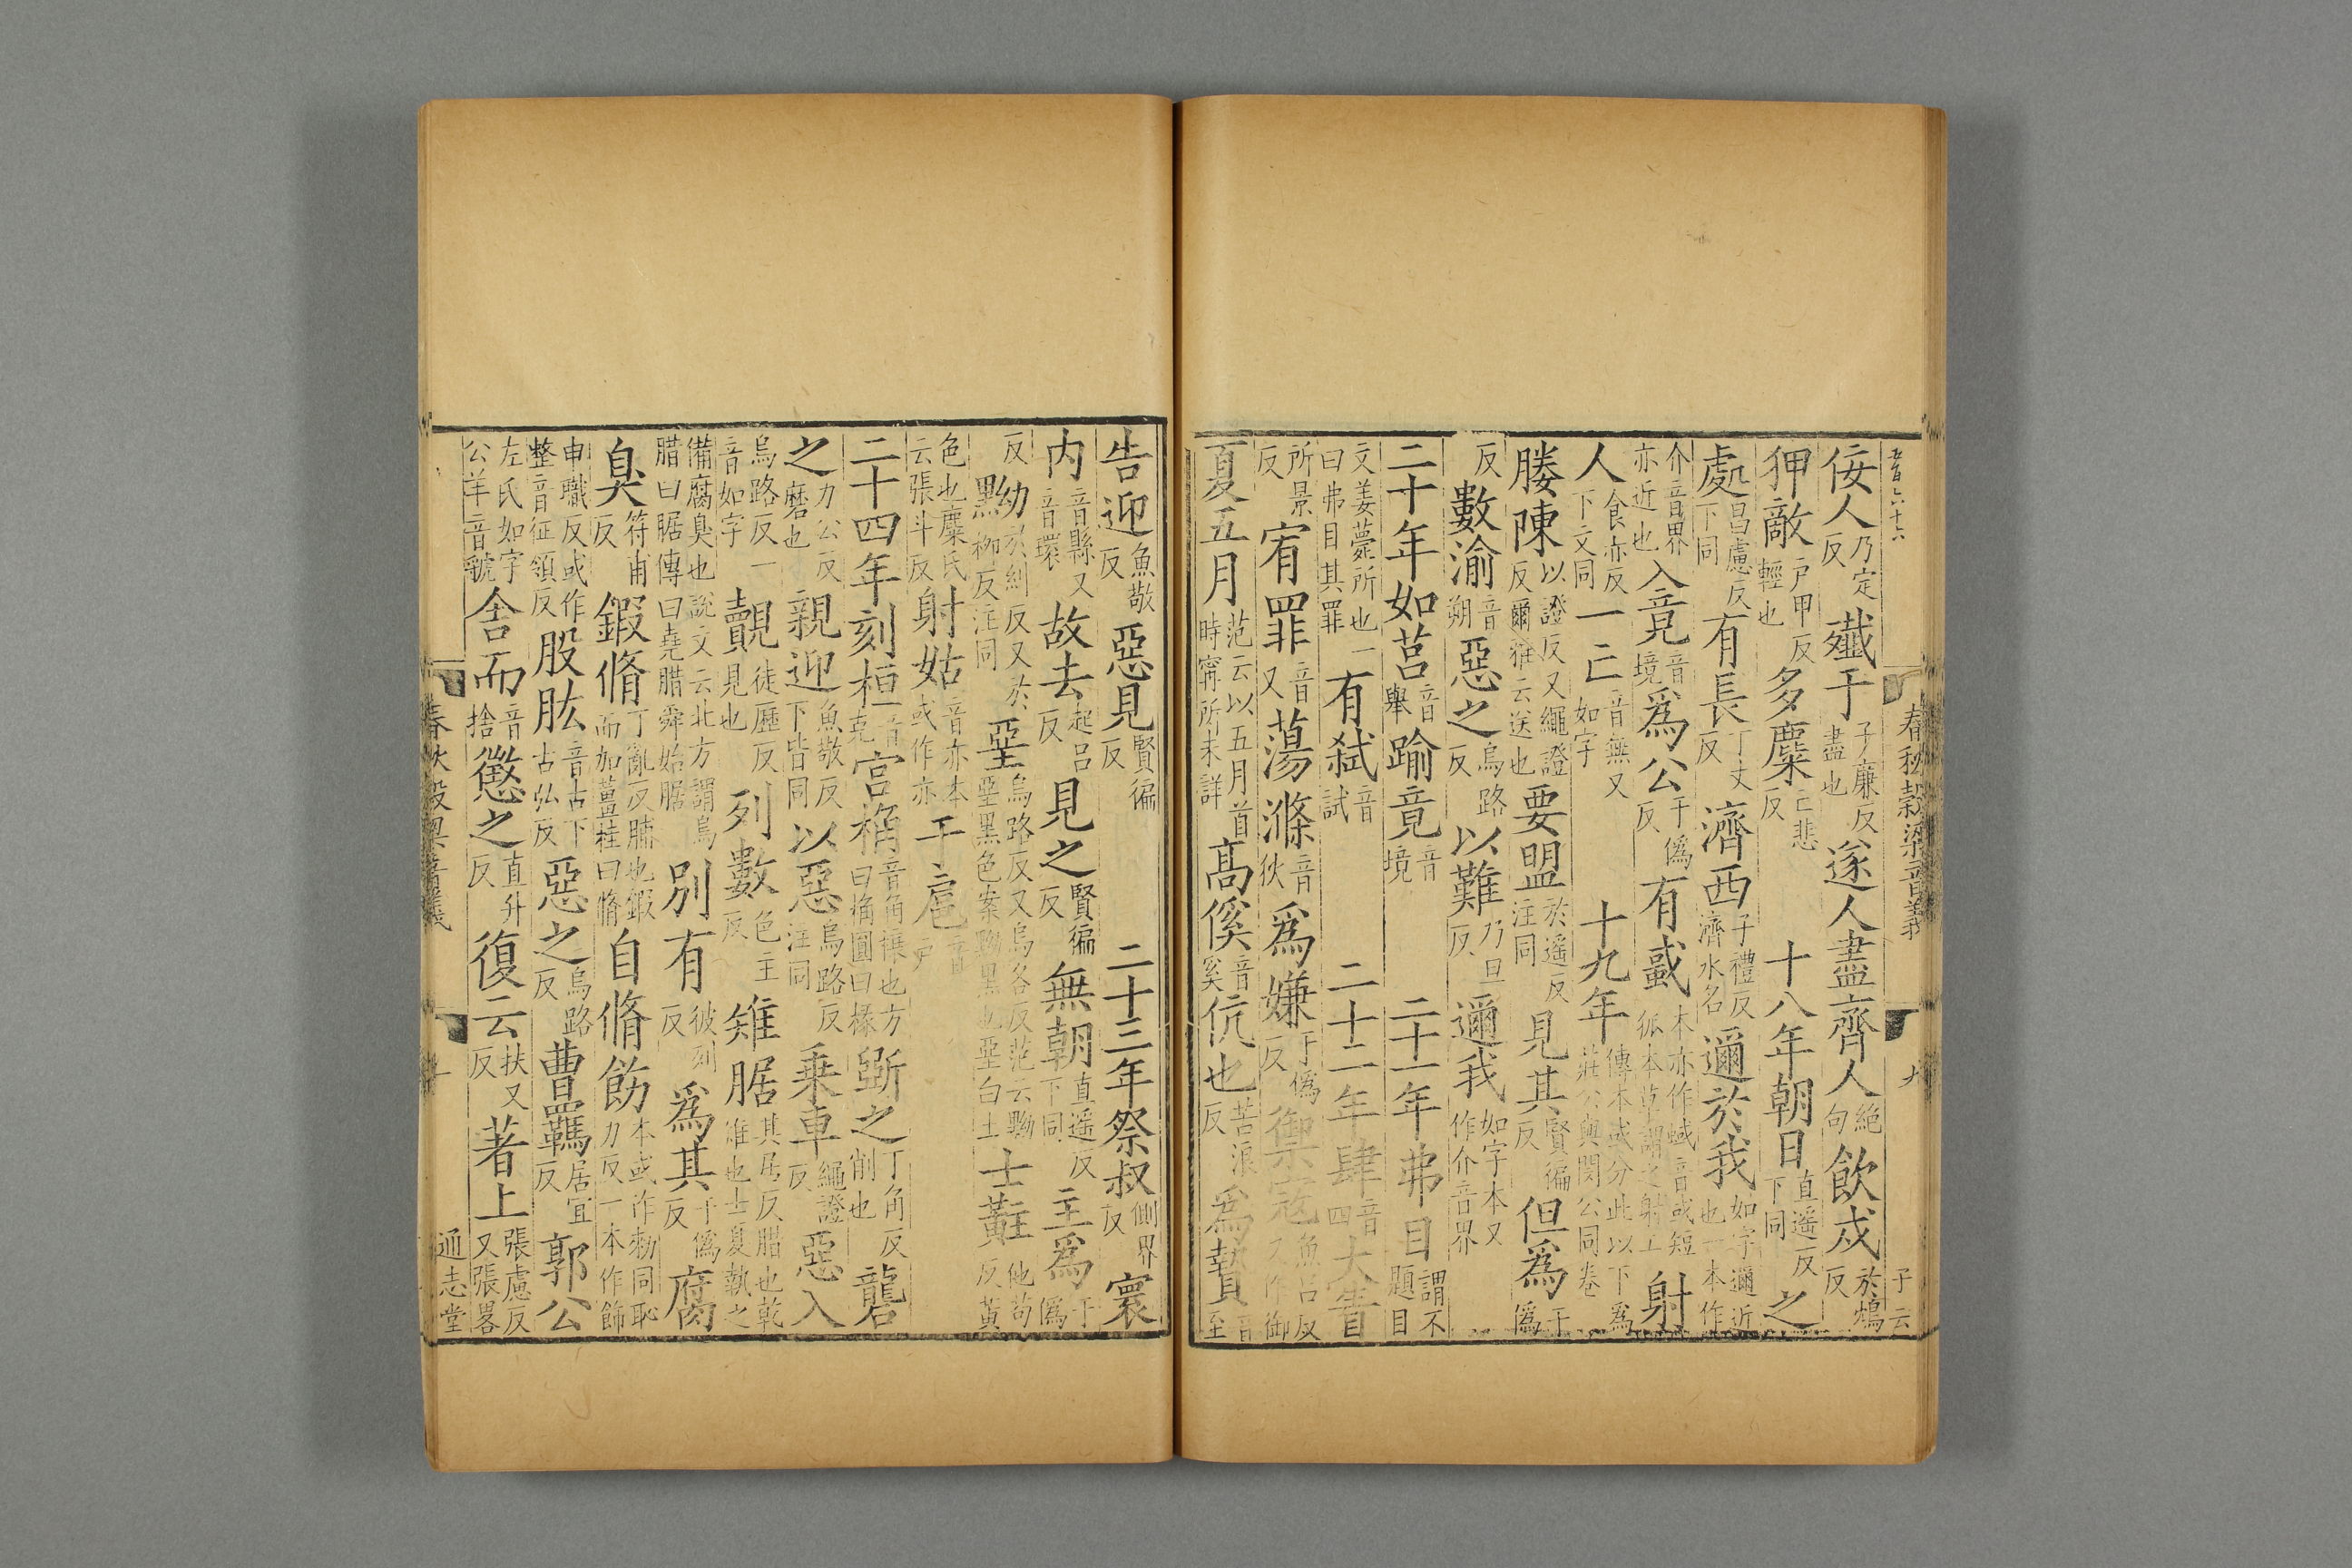 春秋穀梁音義
佞人乃定反殲于子廉反盡也遂人盡齊人絕句飲戍於鴆反
狎敵戸甲反輕也多麋亡悲反十八年朝日直遥反下同之
處昌慮反下同有長丁丈反濟西子禮反濟水名邇於我如字邇近也一本作
介音界亦近也入竟音境爲公于僞反有蜮本亦作蜮音或短狐本草謂之射工射
人食亦反下文同一亡音無又如字十九年傳本或分此以下爲莊公與閔公同卷
媵陳以證反又繩證反爾雅云送也要盟於遥反注同見其賢徧反但爲于僞
反數渝音朔惡之烏路反以難乃旦反邇我如字本又作介音界
二十年如莒音舉踰竟音境二十一年弗目謂不題目
文姜薨所也一曰弗目其罪有弑音試二十二年肆音四大眚
所景反宥罪音又蕩滌音狄爲嫌于僞反禦寇魚吕反又作御
夏五月范云以五月首時甯所未詳高傒音奚伉也苦浪反爲贄音至
告迎魚敬反惡見賢徧反二十三年祭叔側界反寰
内音縣又音環故去起吕反見之賢徧反無朝直遥反下同主爲于僞
反黝於糾反又於柳反注同堊烏路反又烏各反范云黝堊黑色案黝黑也堊白土士黈他苟反黄
色也麋氏云張斗反射姑音亦本或作亦于扈音戸
二十四年刻桓宫桷音角榱也方曰桷圓曰椽斲之丁角反削也礱
之力公反磨也親迎魚敬反下皆同以惡烏路反注同乗車繩證反惡入
烏路反一音如字覿徒歷反見也列數色主反雉腒其居反腊也乾雉也士夏執之
備腐臭也說文云北方謂鳥腊曰腒傳曰堯腊舜始腒别有彼列反爲其于僞反腐
臭符甫反鍜脩丁亂反脯也鍜而加薑桂曰脩自脩飭本或作勑同恥力反一本作飾
申職反或作整音征領反股肱音古下古弘反惡之烏路反曹羈居宜反郭公
左氏如字公羊音虢舍而音捨懲之直升反復云扶又反著上張慮反又張畧
通志堂